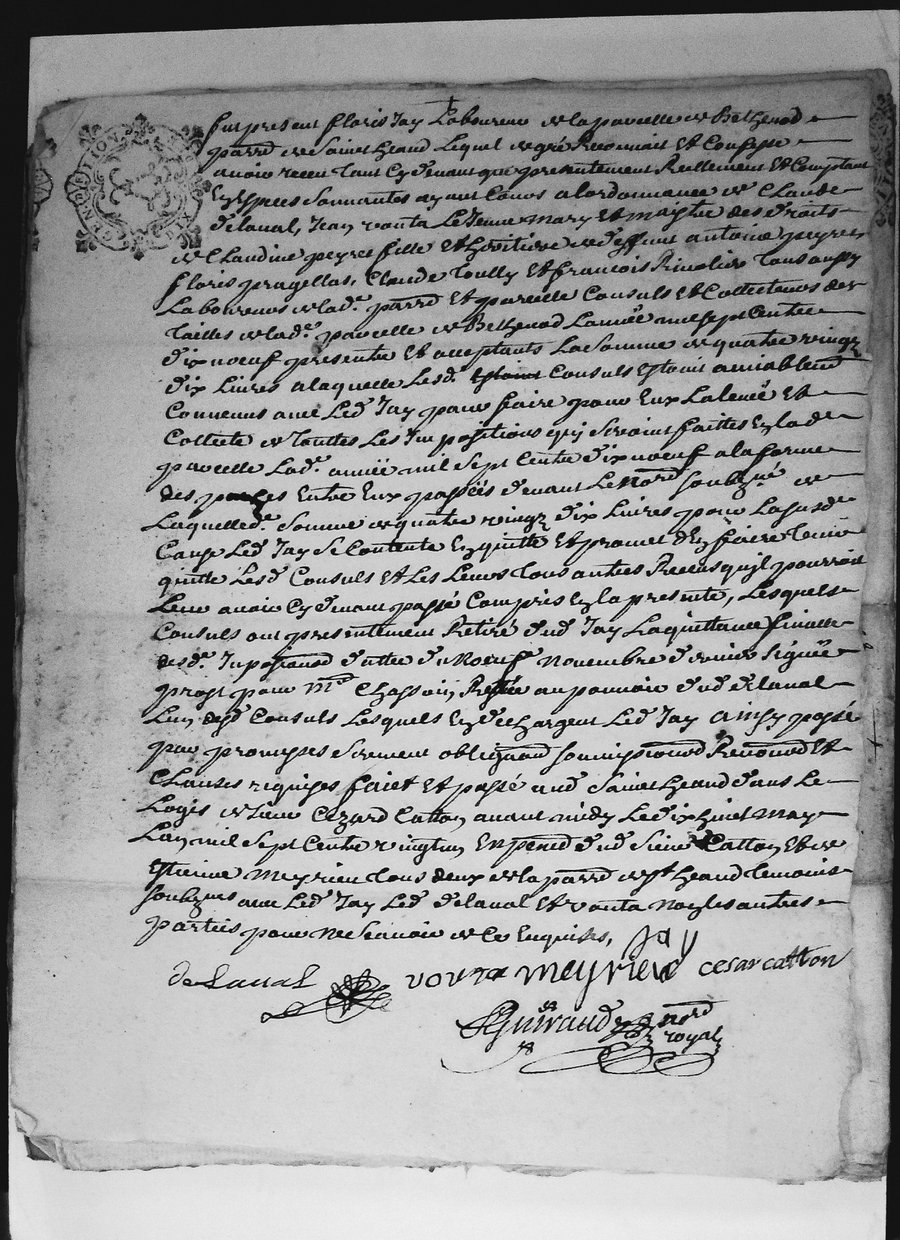 GENERATION
fut present floris Jay Laboureur de la parcelle de Bethenod
parr.d de Saint heand Lequel de gré Reconnait Et Confesse
avoir receu tant Cy devant que presentement Reellement Et Comptant
En Especes Sonnantes ayant Cours a lordonnance de Claude
delaval, Jean vouta Le Jeune Mary Et Maistre des droits
de Claudine peyret fille Et heritiere de deffunt antoine peyret
floris pragellas, Claude Toully Et francois Rivolier tous aussy
Laboureurs de lad.e parr.d Et parcelle Consuls Et Collecteurs des
tailles de lad.e parcelle de Bethenod Lannee mil sept Cents
dix noeuf presents Et acceptants La Somme de quatre vingt
dix Livres a laquelle Lesd. Consuls Estoint amiablem.t
Convenus avec Led. Jay pour faire pour Eux La levée Et
Collecte de touttes Les Impositions quy seroint faittes En lad.
parcelle Lad.e année mil sept Cents dix noeuf a la forme
des Entre Eux passées devant Le No.rd soubz.né de
Laquelled.e Somme de quatre vingt dix Livres pour La susd.
Cause Led. Jay se Contente En quitte Et promet d'En faire tenir
quitte Lesd. Consuls Et Les Leurs tous autres Receus quil pourroit
Leur avoir Cy devant passé Compris En la presente, Lesquels
Consuls ont presentement Retiré dud. Jay La quittance finalle
desd. Impositions dattée du Noeuf novembre dernier signée
prost pour M.r Chassain, Restée au pouvoir dud. delaval
Lun desd. Consuls Lesquels En dechargent Led. Jay ainsy passé
par promesses serement oblig.ons soumissions Renon.ons Et
Clauses requises fait Et passé aud. Saint heand dans Le
Logis de sieur Cezard Catton avant midy Le dix huit May
Lan mil sept Cents vingt un En pre.ce dud. sieur Catton Et de
Estienne Meyrieu tous deux de la parr.d de St heand temoins
soubz.nes avec Led. Jay Led. delaval Et vouta non Les autres
parties pour ne Scavoir de Ce Enquises,
Jay
de Laval vouta meyrieu cesar catton
Guiraud no.rd
royal